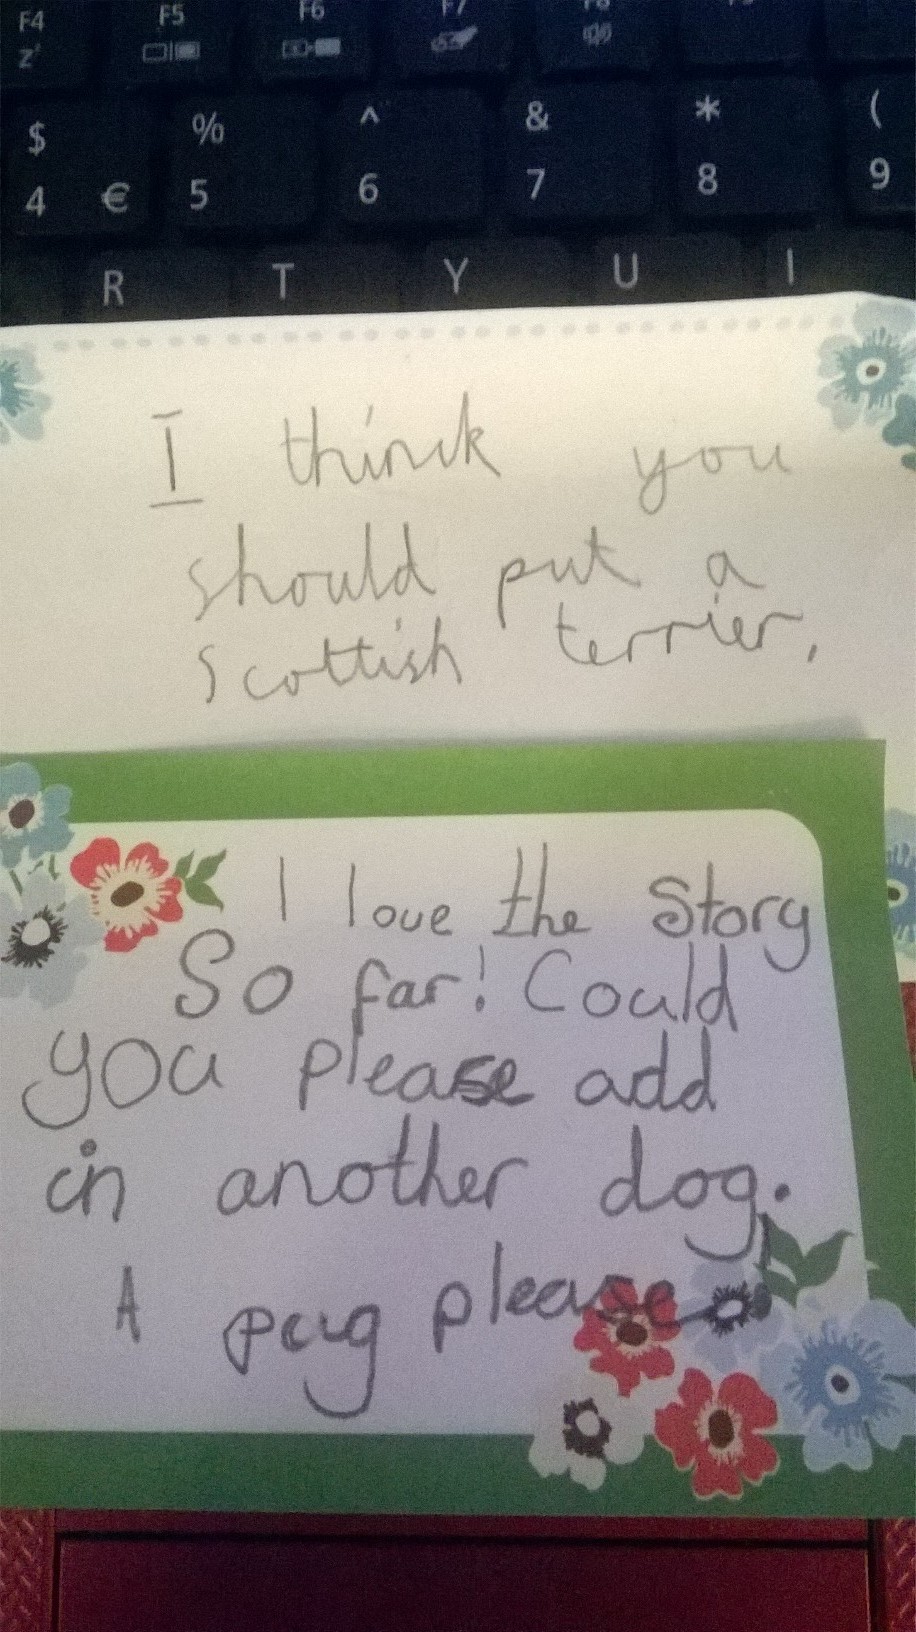 F4 F5 F6 F7 F8
z
$ % ^ & * (
4 € 5 6 7 8 9
R T Y U I
I think you
should put a
scottish terrier,
I love the Story
So far! Could
you please add
in another dog.
A pug please!